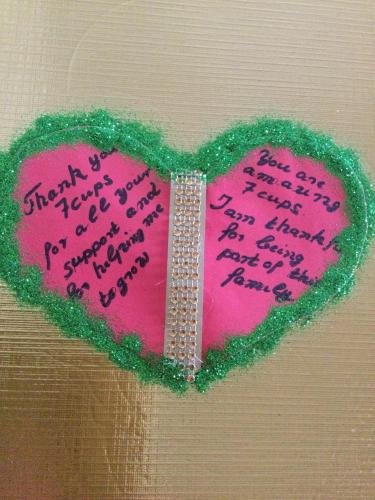 Thank you
7cups
for all your
support and
for helping me
to grow
You are
amazing
7cups.
I am thankful
for being
part of this
family